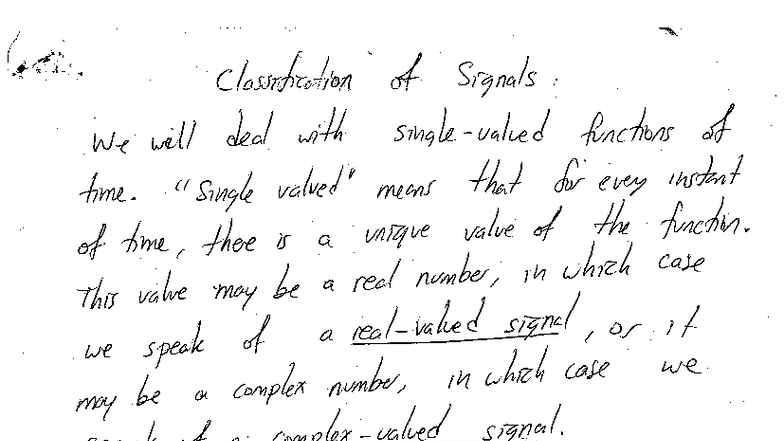 Classification of Signals :
We will deal with single-valued functions of
time. "Single valued" means that for every instant
of time, there is a unique value of the function.
This value may be a real number, in which case
we speak of a real-valued signal, or it
may be a complex number, in which case we
speak of a complex-valued signal.